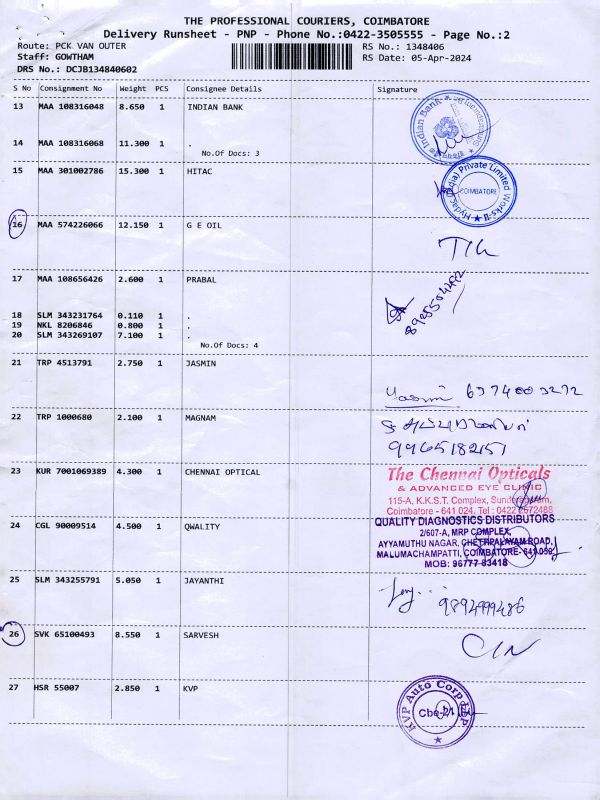 THE PROFESSIONAL COURIERS, COIMBATORE
Delivery Runsheet - PNP - Phone No.:0422-3505555 - Page No.:2
Route: PCK VAN OUTER RS No.: 1348406
Staff: GOWTHAM RS Date: 05-Apr-2024
DRS No.: DCJB134840602
S No Consignment No Weight PCS Consignee Details Signature
13 MAA 108316048 8.650 1 INDIAN BANK
Indian Bank
14 MAA 108316068 11.300 1 .
No.Of Docs: 3
15 MAA 301002786 15.300 1 HITAC
Private Limited
COIMBATORE
Works-II
16 MAA 574226066 12.150 1 G E OIL
17 MAA 108656426 2.600 1 PRABAL
18 SLM 343231764 0.110 1 .
19 NKL 8206846 0.800 1 .
20 SLM 343269107 7.100 1 .
No.Of Docs: 4
21 TRP 4513791 2.750 1 JASMIN
22 TRP 1000680 2.100 1 MAGNAM
9965182151
23 KUR 7001069389 4.300 1 CHENNAI OPTICAL
The Chennai Opticals
& ADVANCED EYE CLINIC
115-A, K.K.S.T. Complex,
Coimbatore - 641 024. Tel : 0422 2672488
24 CGL 90009514 4.500 1 QWALITY
QUALITY DIAGNOSTICS DISTRIBUTORS
2/607-A, MRP COMPLEX,
AYYAMUTHU NAGAR, CHETTIPALAYAM ROAD,
MALUMACHAMPATTI, COIMBATORE- 641 050.
MOB: 96777 83418
25 SLM 343255791 5.050 1 JAYANTHI
9894999486
26 SVK 65100493 8.550 1 SARVESH
27 HSR 55007 2.850 1 KVP
KVP Auto Corp LLP
Cbe-21